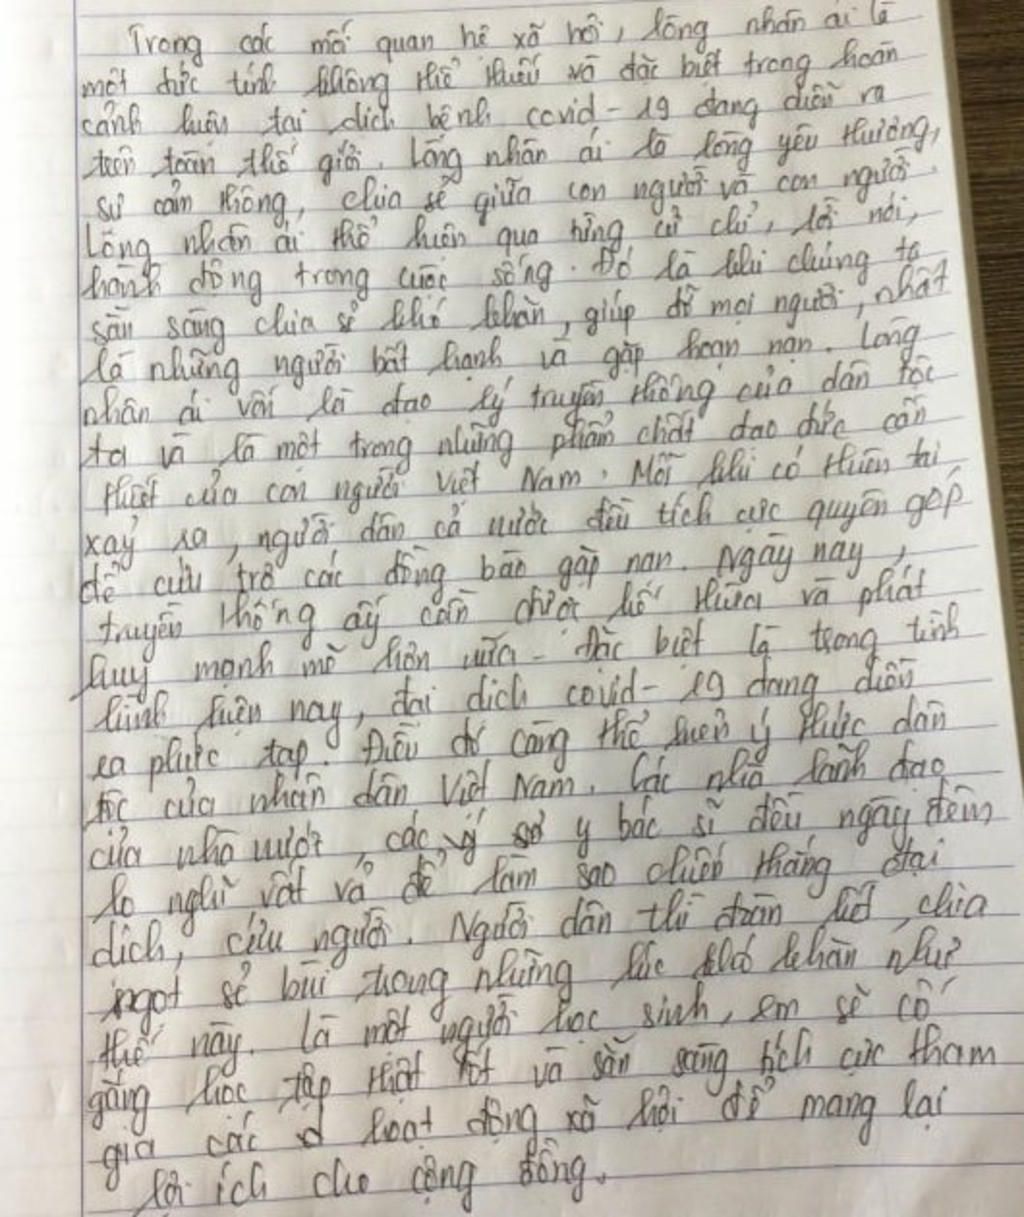 Trong các mối quan hệ xã hội, lòng nhân ái là
một đức tính không thể thiếu và đặc biệt trong hoàn
cảnh hiện tại dịch bệnh covid-19 đang diễn ra
trên toàn thế giới. Lòng nhân ái là lòng yêu thương,
sự cảm thông, chia sẻ giữa con người và con người.
Lòng nhân ái thể hiện qua từng cử chỉ, lời nói,
hành động trong cuộc sống. Đó là khi chúng ta
sẵn sàng chia sẻ khó khăn, giúp đỡ mọi người, nhất
là những người bất hạnh và gặp hoạn nạn. Lòng
nhân ái vốn là đạo lý truyền thống của dân tộc
ta và là một trong những phẩm chất đạo đức cần
thiết của con người Việt Nam. Mỗi khi có thiên tai
xảy ra, người dân cả nước đều tích cực quyên góp
để cứu trợ các đồng bào gặp nạn. Ngày nay,
truyền thống ấy cần được kế thừa và phát
huy mạnh mẽ hơn nữa. Đặc biệt là trong tình
hình hiện nay, đại dịch covid-19 đang diễn
ra phức tạp. Điều đó càng thể hiện ý thức dân
tộc của nhân dân Việt Nam. Các nhà lãnh đạo
của nhà nước, các y bác sĩ đều ngày đêm
lo nghĩ vất vả để làm sao chiến thắng đại
dịch, cứu người. Người dân thì đoàn kết, chia
ngọt sẻ bùi trong những lúc khó khăn như
thế này. Là một người học sinh, em sẽ cố
gắng học tập thật tốt và sẵn sàng tích cực tham
gia các hoạt động xã hội để mang lại
lợi ích cho cộng đồng.